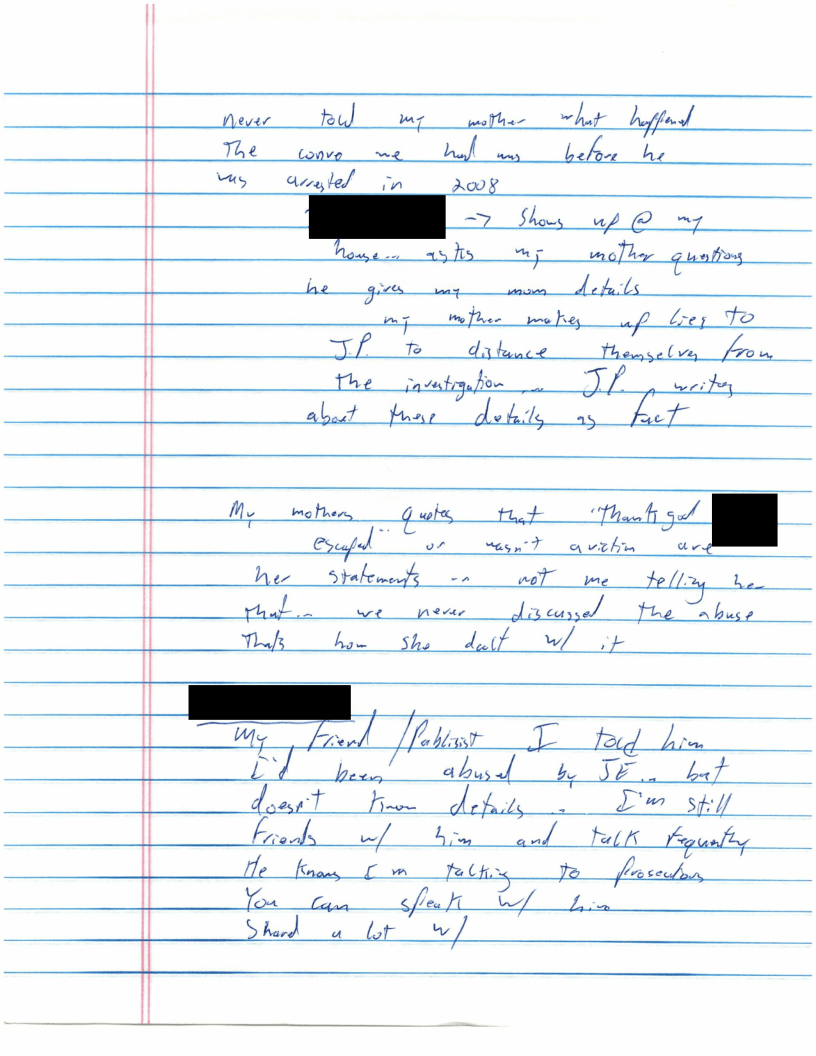 never told my mother what happened
The convo we had was before he
was arrested in 2008
-> Shows up @ my
house... asks my mother questions
he gives my mom details
my mother makes up lies to
J.P. to distance themselves from
the investigation... J.P. writes
about these details as fact
My mothers quotes that "Thank god
escaped" or wasn't a victim are
her statements -- not me telling her
that... we never discussed the abuse
Thats how she dealt w/ it
My Friend/Publisist I told him
I'd been abused by JE... but
doesn't know details .. I'm still
friends w/ him and talk frequently
He knows I'm talking to prosecutors
You can speak w/ him
Shared a lot w/